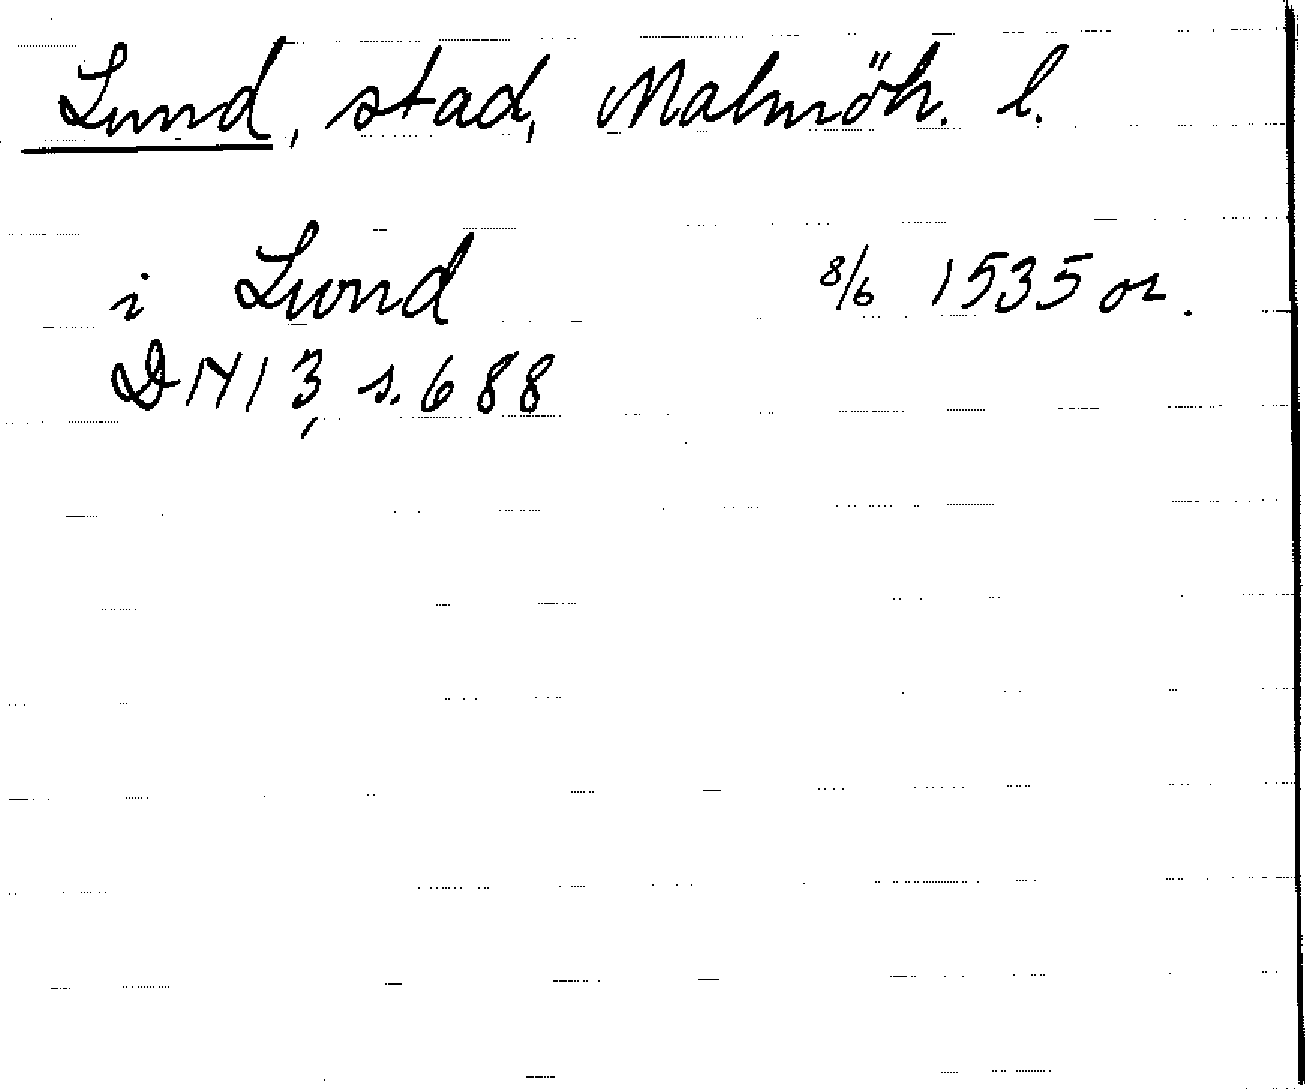 Lund, stad, Malmöh. l.
i Lund 8/6 1535 or.
DN 13, s. 688